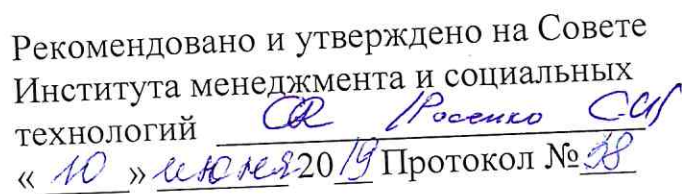 Рекомендовано и утверждено на Совете
Института менеджмента и социальных
технологий /Росенко С.И/
« 10 » июня 2019 Протокол №